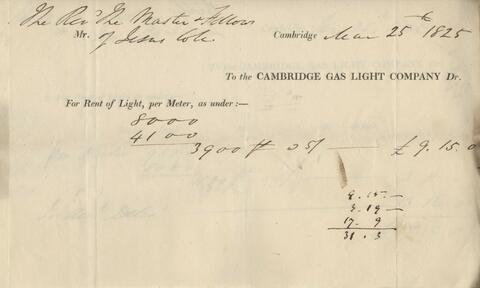 The Revd The Master & Fellows
Mr. of Jesus Coll. Cambridge Mar 25th 1825
To the CAMBRIDGE GAS LIGHT COMPANY Dr.
For Rent of Light, per Meter, as under:—
8000
4100
3900 ft 0 5/ — £ 9.15.0
9.15.—
3.19—
17.9
31.3